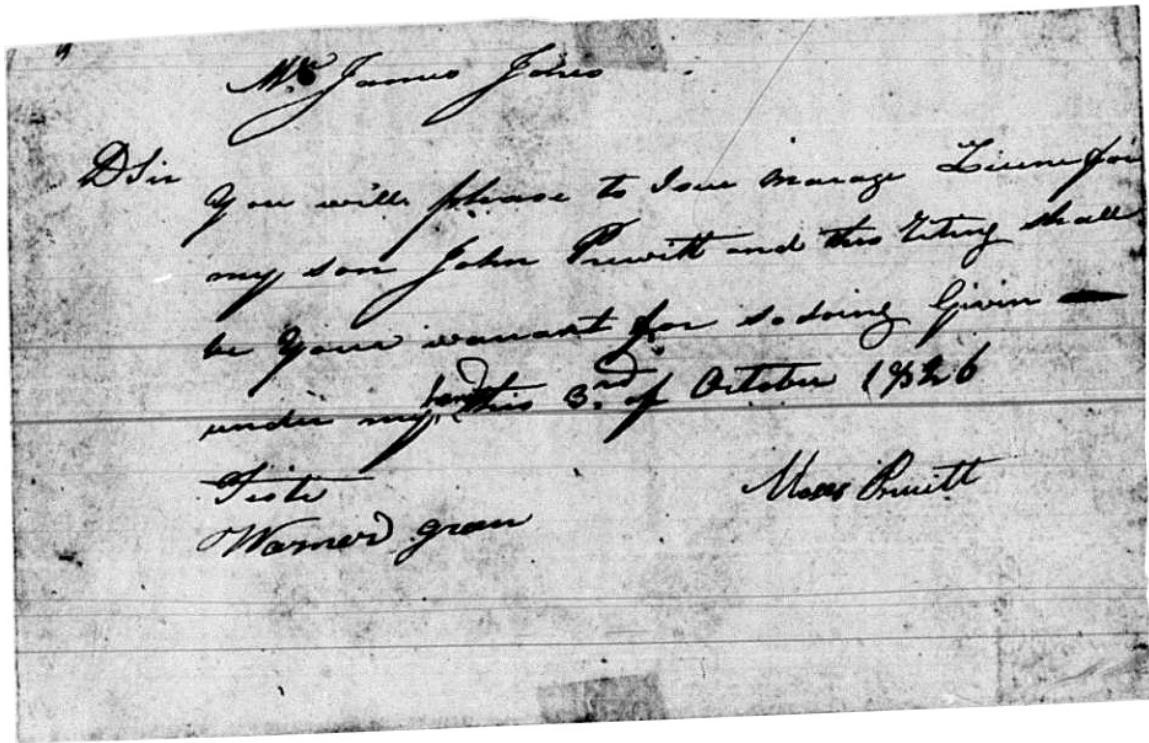 Mr James Johns
D Sir
You will please to Isue marage Licene for
my son John Pruwitt and this riting shall
be your warrant for so doing Givin
under my hand this 3.rd of October 1826
Teste
Warner green
Moses Pruitt